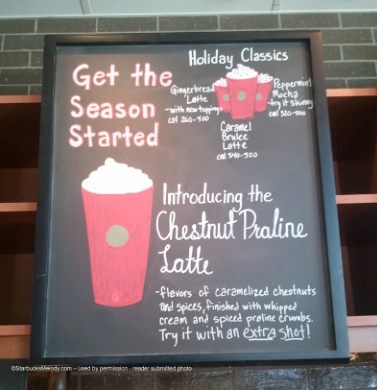 Get the
Season
Started
Holiday Classics
Gingerbread
Latte
-with new toppings
cal 260-400
Caramel
Brulee
Latte
cal 340-520
Peppermint
Mocha
-try it skinny
cal 320-500
Introducing the
Chestnut Praline
Latte
-flavors of caramelized chestnuts
and spices, finished with whipped
cream and spiced praline crumbs.
Try it with an extra shot!
©StarbucksMelody.com – used by permission - reader submitted photo